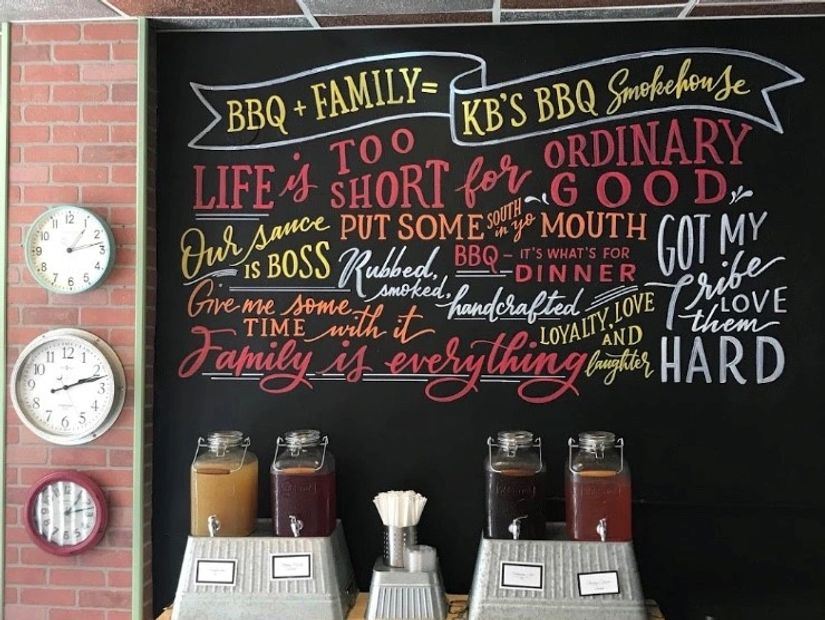 BBQ + FAMILY = KB'S BBQ Smokehouse
LIFE is TOO SHORT for ORDINARY GOOD
Our sauce IS BOSS
PUT SOME SOUTH in yo MOUTH
Rubbed, smoked, handcrafted
BBQ - IT'S WHAT'S FOR DINNER
GOT MY tribe LOVE them HARD
Give me some TIME with it
LOYALTY, LOVE AND laughter
Family is everything
12 1 2 3 4 5 6 7 8 9 10 11
12 1 2 3 4 5 6 7 8 9 10 11